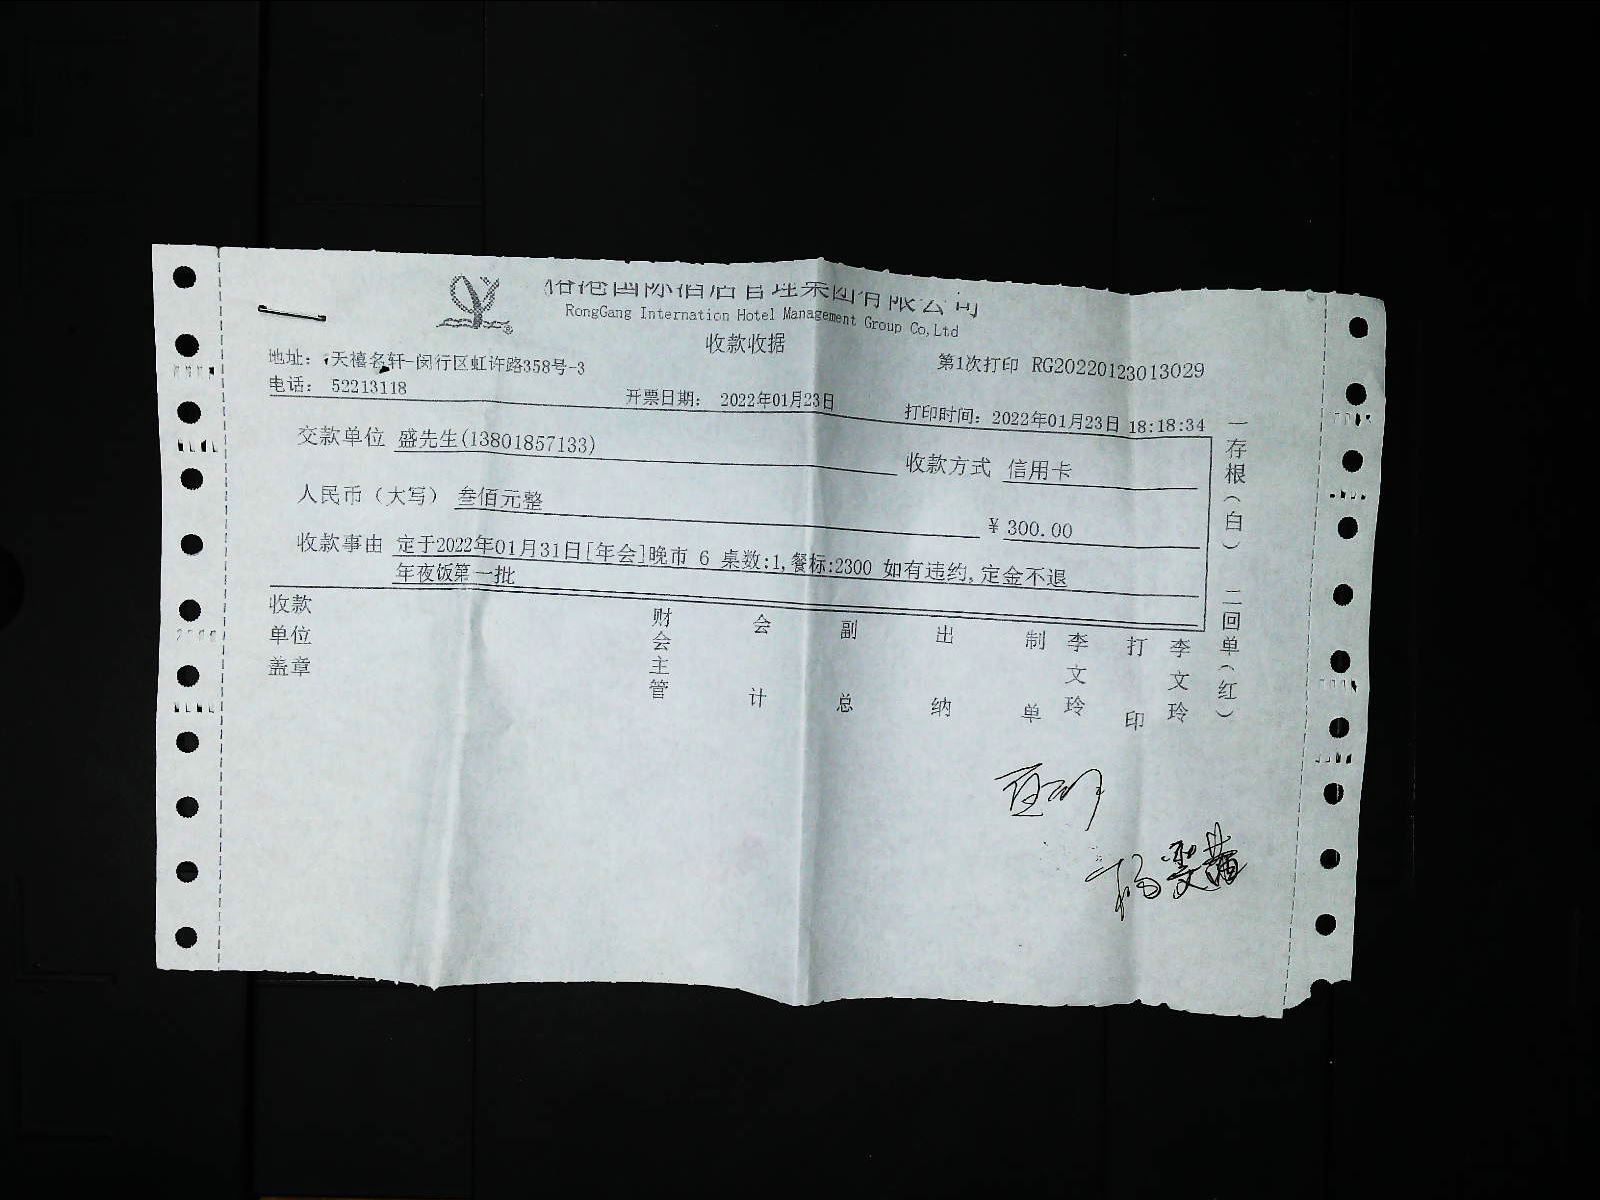 港国际酒店管理集团有限公司
RongGang Internation Hotel Management Group Co,Ltd
收款收据
地址： 天禧名轩-闵行区虹许路358号-3
第1次打印 RG20220123013029
电话： 52213118
开票日期： 2022年01月23日
打印时间：2022年01月23日 18:18:34
交款单位 盛先生(13801857133)
收款方式 信用卡
人民币（大写） 叁佰元整
¥ 300.00
收款事由 定于2022年01月31日[年会]晚市 6 桌数:1,餐标:2300 如有违约,定金不退
年夜饭第一批
收款单位盖章
财会主管
会计
副总
出纳
制单
李文玲
打印
李文玲
一存根（白） 二回单（红）